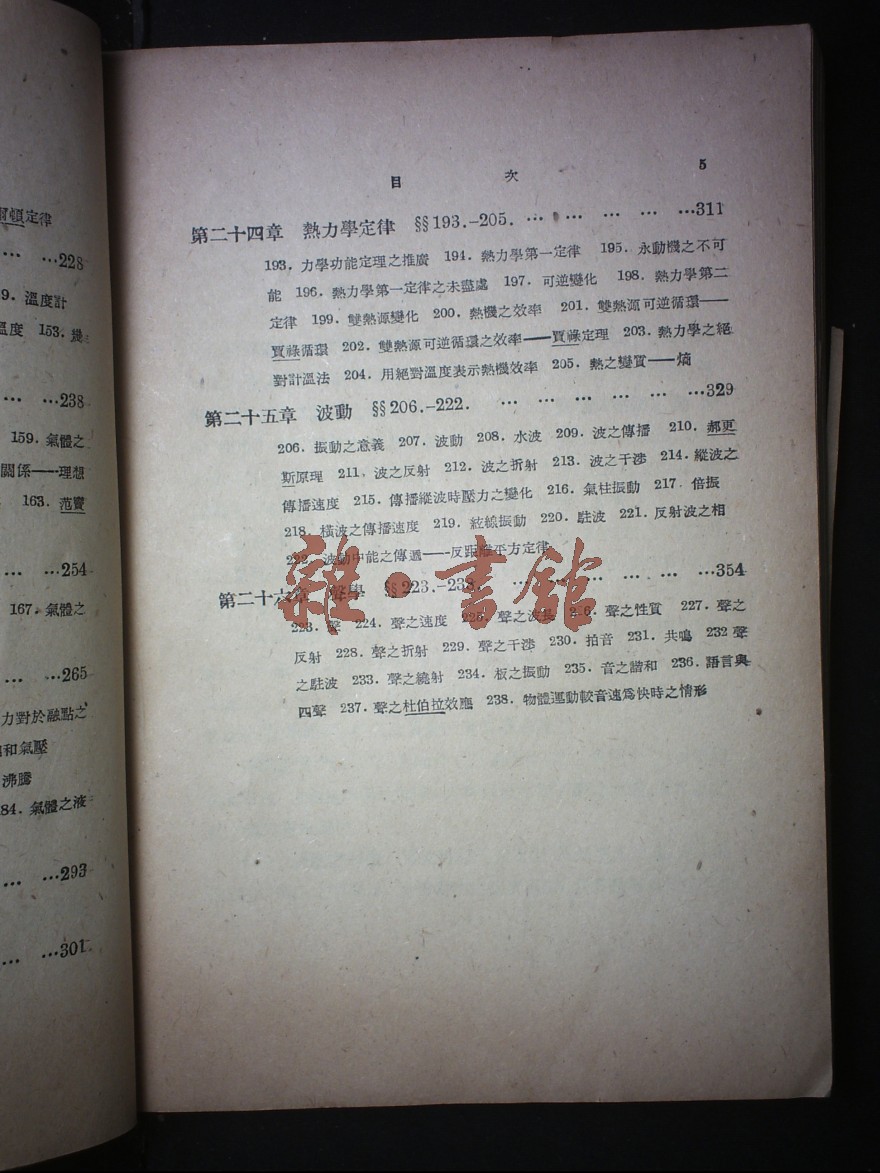 爾頓定律
… …228
9．溫度計
溫度 153．幾
… …238
159．氣體之
關係——理想
163．范寶
… …254
167．氣體之
… …265
力對於融點之
和氣壓
沸騰
84．氣體之液
… …293
… …301
目 次 5
第二十四章 熱力學定律 §§193.-205. … … … … …311
193．力學功能定理之推廣 194．熱力學第一定律 195．永動機之不可
能 196．熱力學第一定律之未盡處 197．可逆變化 198．熱力學第二
定律 199．雙熱源變化 200．熱機之效率 201．雙熱源可逆循環——
賈祿循環 202．雙熱源可逆循環之效率——賈祿定理 203．熱力學之絕
對計溫法 204．用絕對溫度表示熱機效率 205．熱之變質——熵
第二十五章 波動 §§206.-222. … … … … … …329
206．振動之意義 207．波動 208．水波 209．波之傳播 210．郝更
斯原理 211．波之反射 212．波之折射 213．波之干涉 214．縱波之
傳播速度 215．傳播縱波時壓力之變化 216．氣柱振動 217．倍振
218．橫波之傳播速度 219．絃線振動 220．駐波 221．反射波之相
222．波動中能之傳遞——反距離平方定律
第二十六章 聲學 §§223.-238. … … … … … …354
223．聲 224．聲之速度 225．聲之波長 226．聲之性質 227．聲之
反射 228．聲之折射 229．聲之干涉 230．拍音 231．共鳴 232 聲
之駐波 233．聲之繞射 234．板之振動 235．音之諧和 236．語言與
四聲 237．聲之杜伯拉效應 238．物體運動較音速爲快時之情形
雜·書館